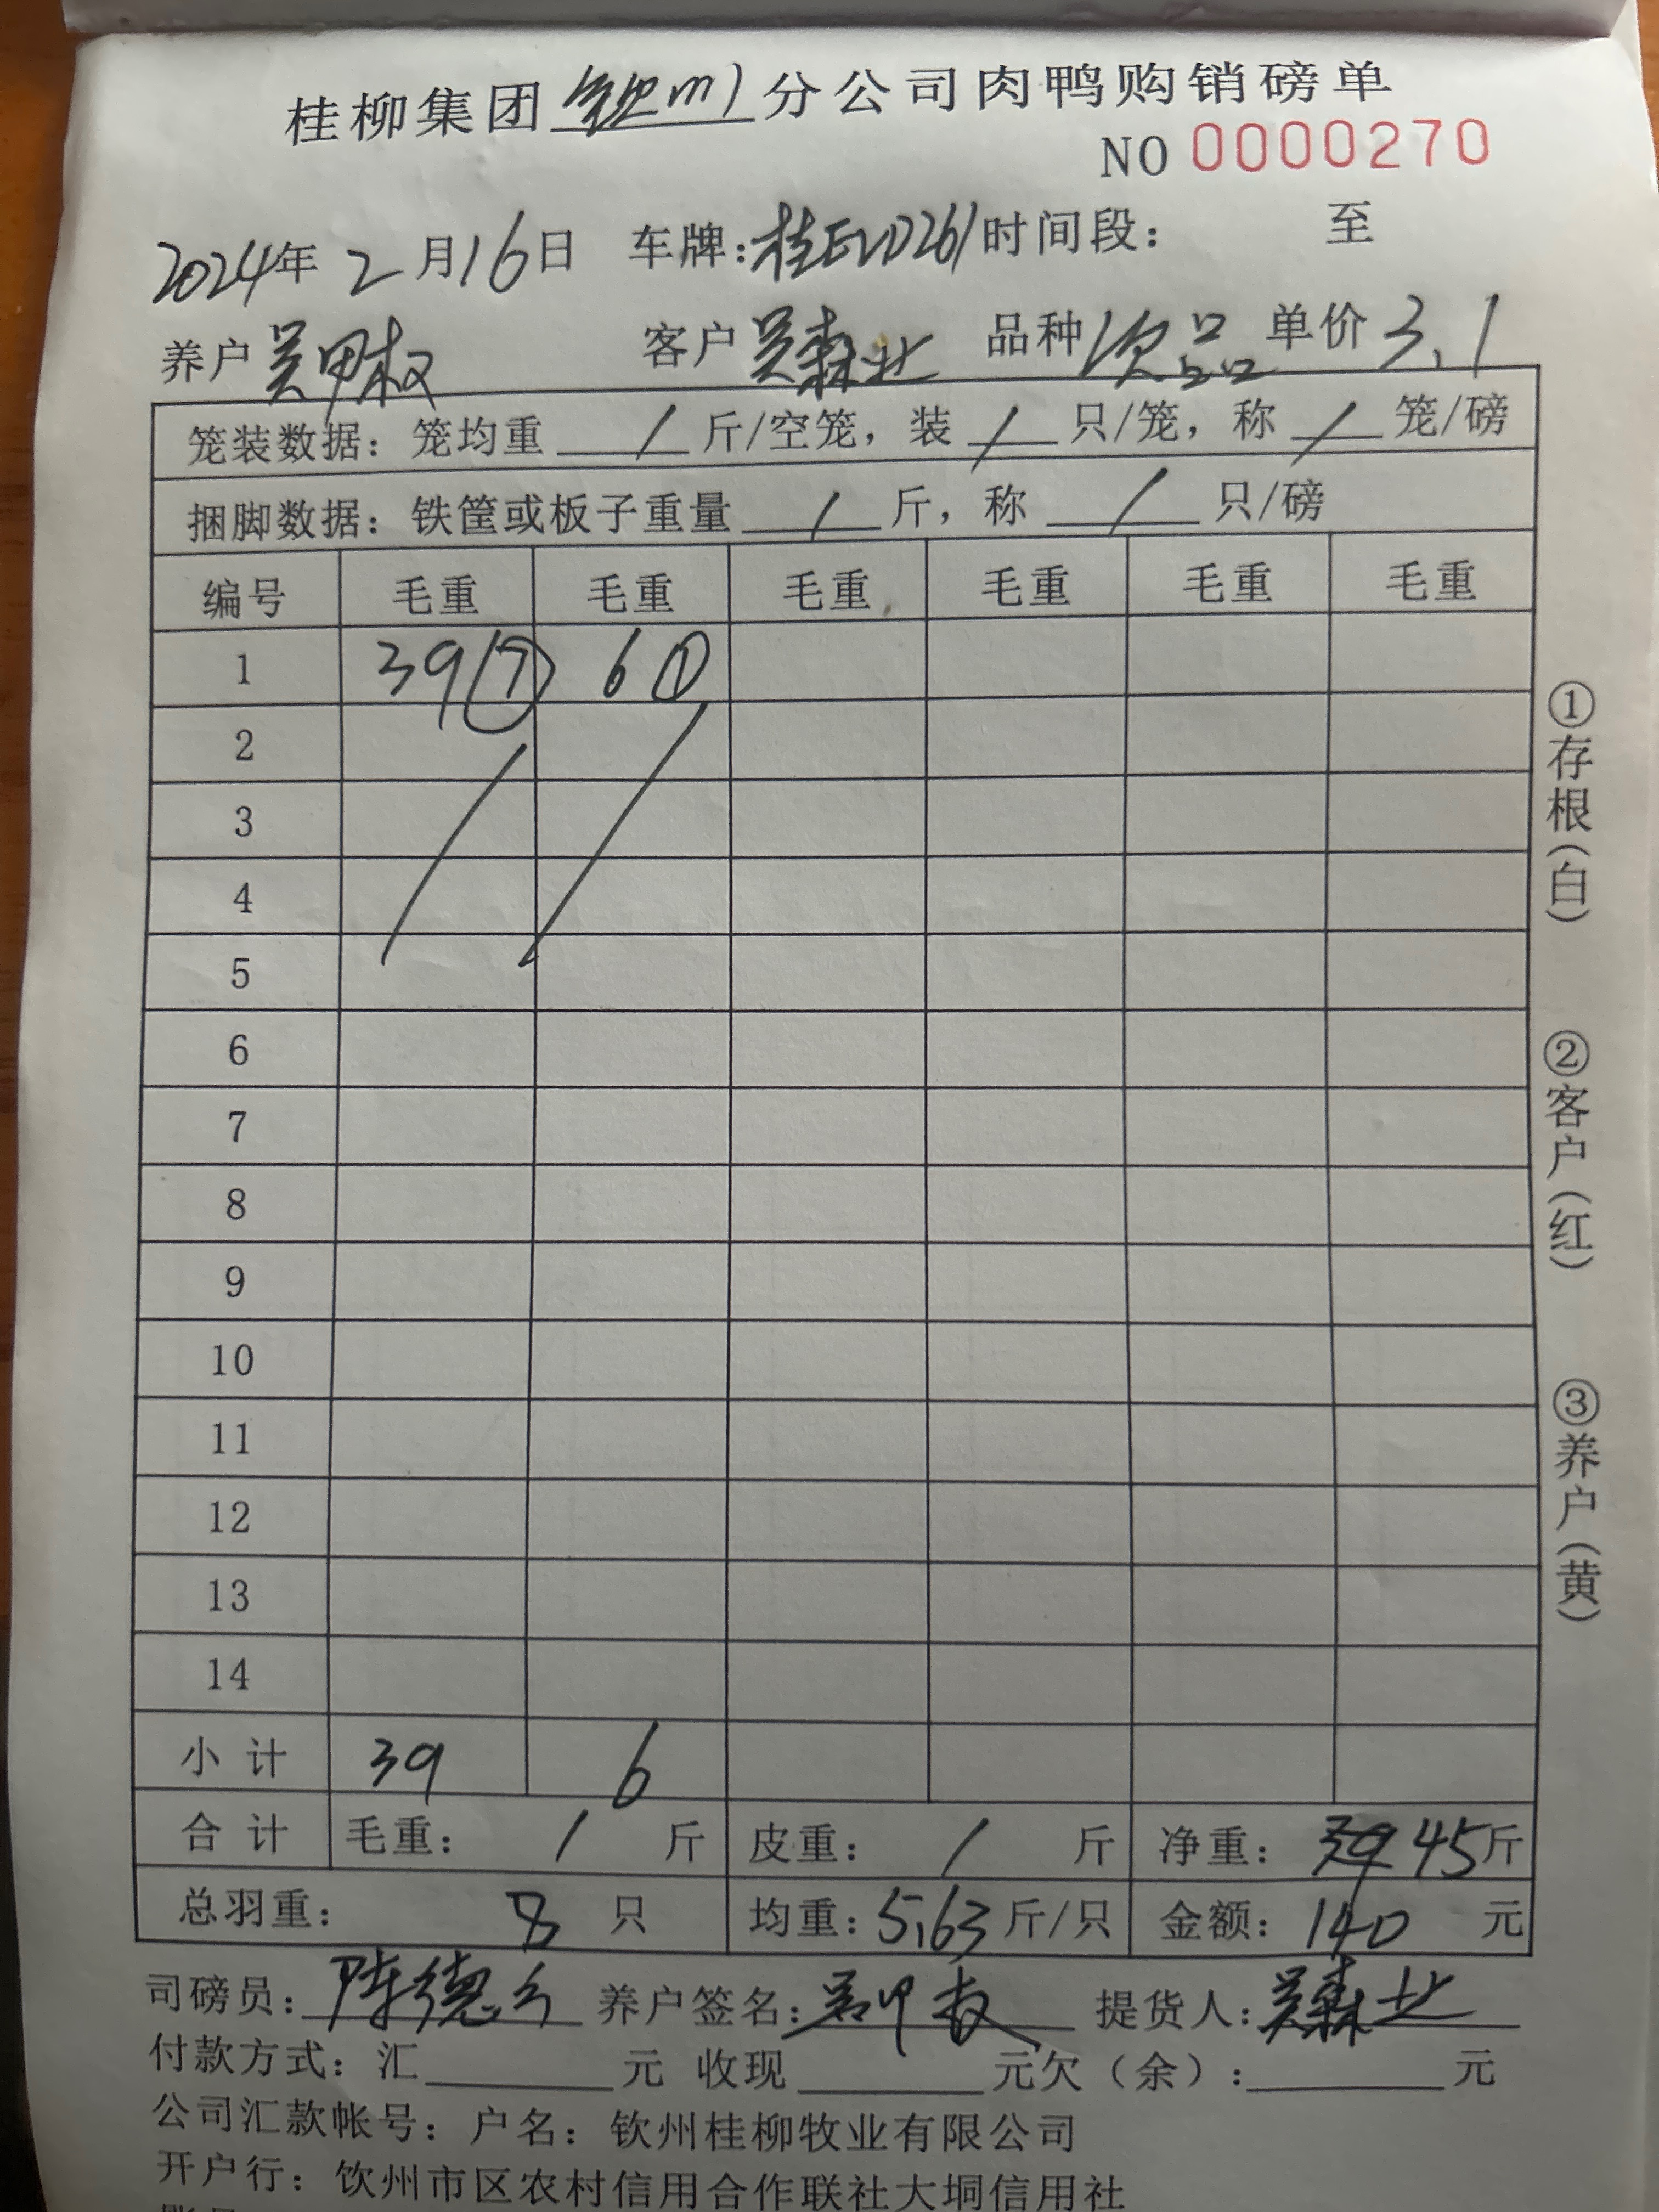 桂柳集团钦州分公司肉鸭购销磅单
NO 0000270
2024年2月16日 车牌:桂ED0261 时间段: 至
养户 吴甲权 客户 吴森北 品种 次品 单价 3.1
笼装数据:笼均重 / 斤/空笼,装 / 只/笼,称 / 笼/磅
捆脚数据:铁筐或板子重量 / 斤,称 / 只/磅
编号 毛重 毛重 毛重 毛重 毛重 毛重
1 39⑦ 6①
2
3
4
5
6
7
8
9
10
11
12
13
14
小计 39 6
合计 毛重: / 斤 皮重: / 斤 净重: 39 45斤
总羽重: 8 只 均重:5.63斤/只 金额:140 元
司磅员:陈德 养户签名:吴甲权 提货人:吴森北
付款方式:汇 元 收现 元欠(余): 元
公司汇款帐号:户名:钦州桂柳牧业有限公司
开户行:钦州市区农村信用合作联社大垌信用社
①存根(白)
②客户(红)
③养户(黄)